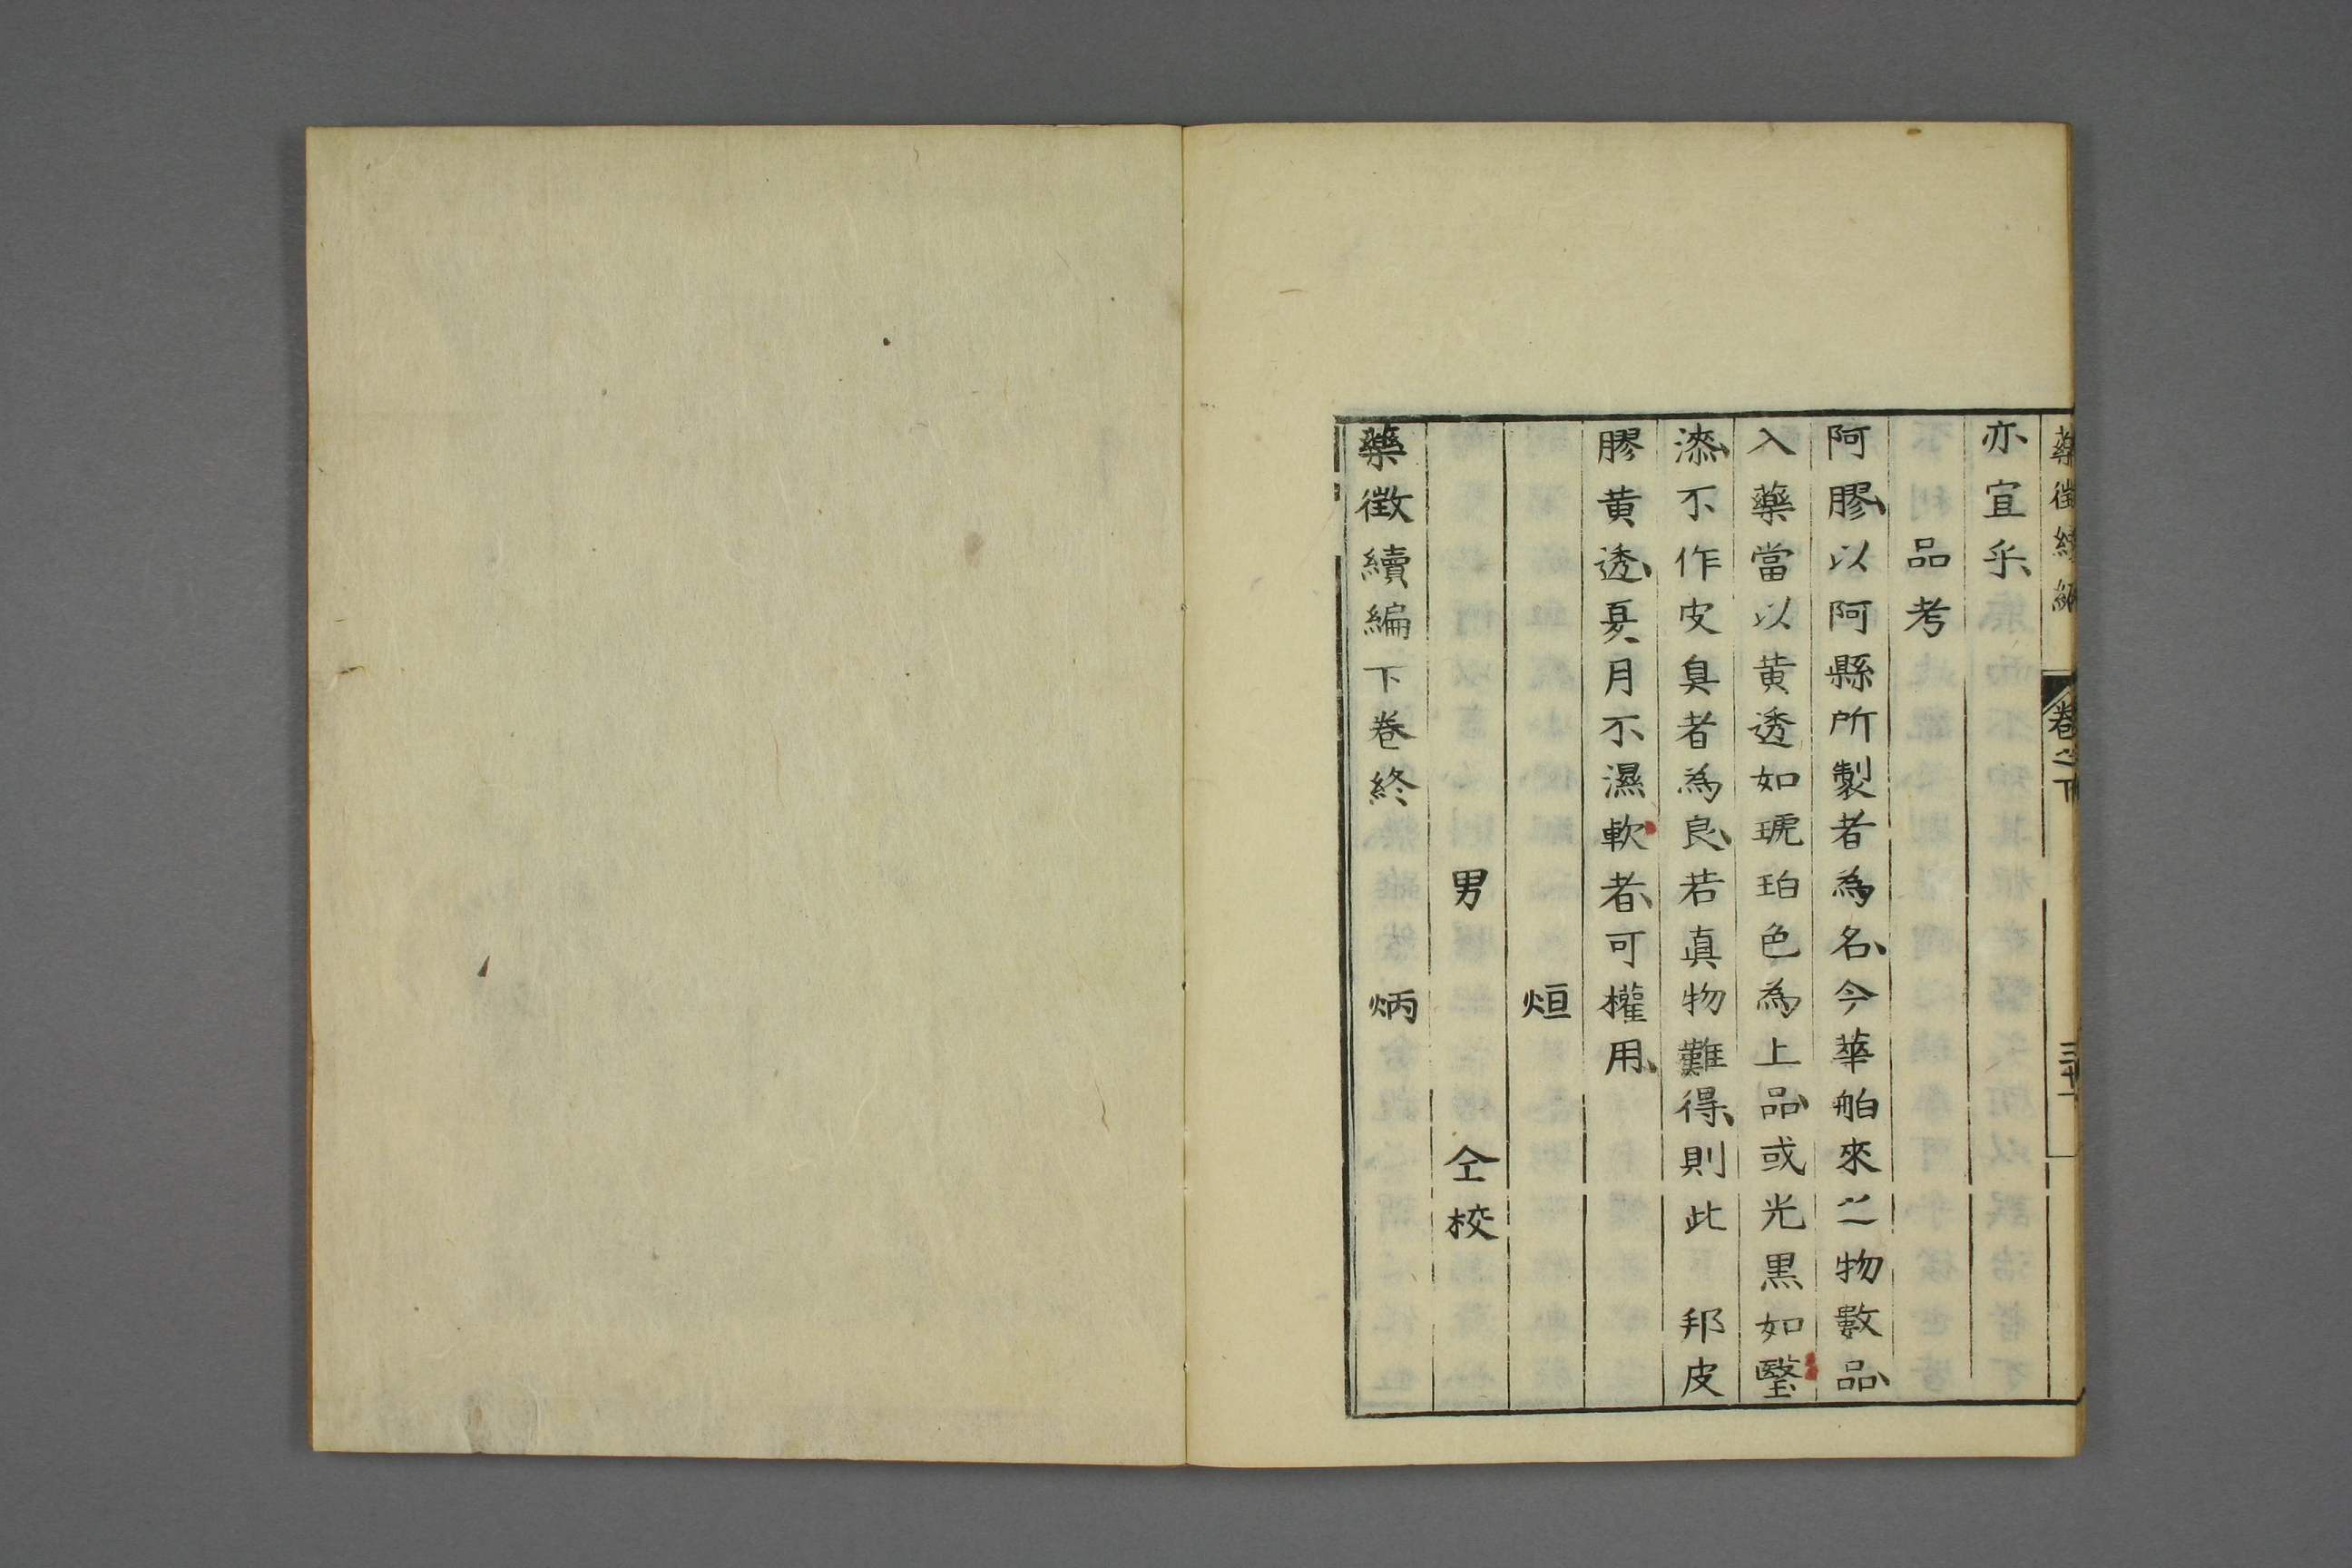 藥徴續編 卷之下 三十一
亦宜乎、
品考
阿膠、以阿縣所製者為名、今華舶來之物數品、
入藥當以黄透如琥珀色為上品、或光黒如瑿
漆、不作皮臭者為良、若真物難得、則此 邦皮
膠黄透、夏月不濕軟者、可權用、
烜
男 仝校
藥徴續編下卷終 炳